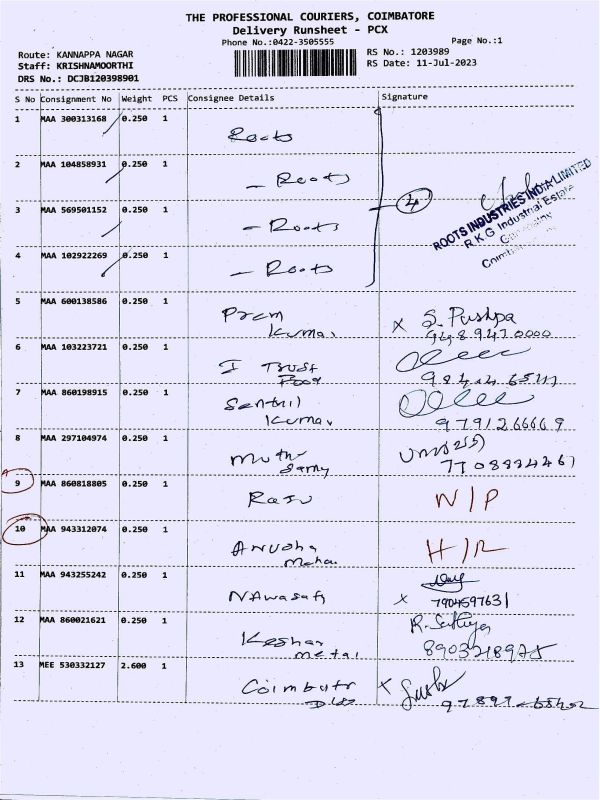 THE PROFESSIONAL COURIERS, COIMBATORE
Delivery Runsheet - PCX
Phone No.:0422-3505555 Page No.:1
Route: KANNAPPA NAGAR RS No.: 1203989
Staff: KRISHNAMOORTHI RS Date: 11-Jul-2023
DRS No.: DCJB120398901
S No Consignment No Weight PCS Consignee Details Signature
1 MAA 300313168 0.250 1
Roots
2 MAA 104858931 0.250 1
- Roots
3 MAA 569501152 0.250 1 4
- Roots
ROOTS INDUSTRIES INDIA LIMITED
R.K.G Industrial Estate
4 MAA 102922269 0.250 1
- Roots
5 MAA 600138586 0.250 1
Prem x S. Pushpa
Kumar 9489470000
6 MAA 103223721 0.250 1
I Trust
Food
7 MAA 860198915 0.250 1
Senthil
Kumar 9791266669
8 MAA 297104974 0.250 1
Muthu
Samy 7708834467
9 MAA 860818805 0.250 1
Raju N/P
10 MAA 943312074 0.250 1
Anusha H/R
Mohan
11 MAA 943255242 0.250 1
Nawasafs x 7904597631
12 MAA 860021621 0.250 1
Keshar R. Sathya
metal 8903218975
13 MEE 530332127 2.600 1
Coimbutr x